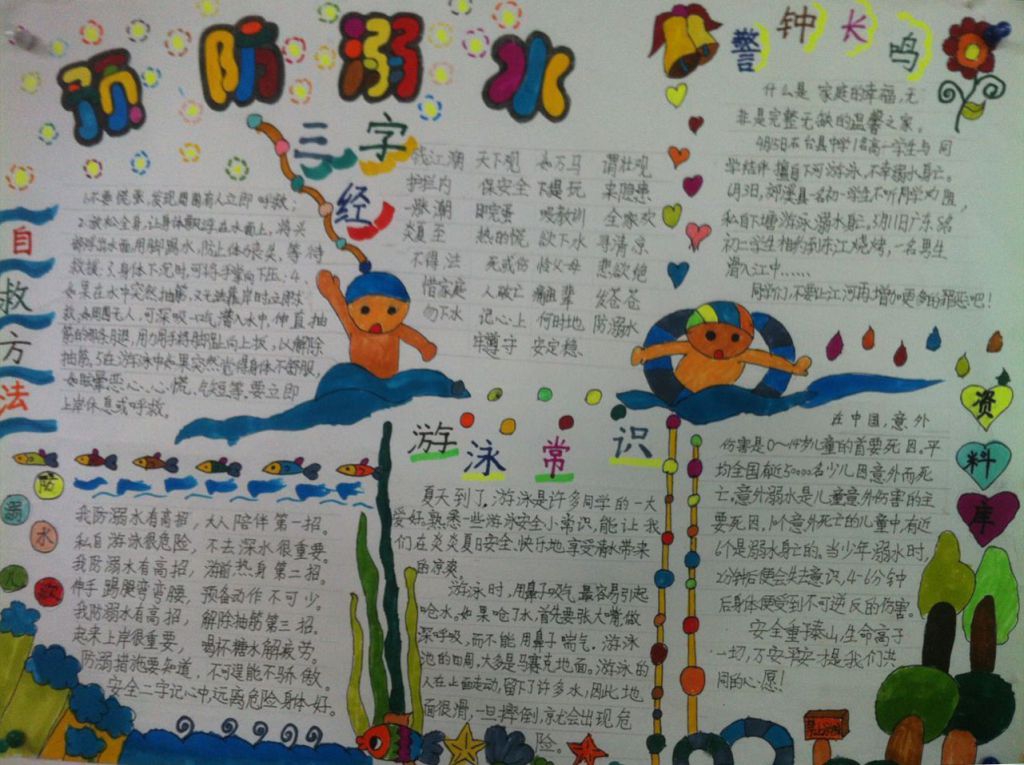 预防溺水
三字经
钱江潮 天下观 如万马 谓壮观
护栏内 保安全 下堤玩 来隐患
一涨潮 即完蛋 吸教训 全家欢
炎夏至 热的慌 欲下水 寻清凉
不得法 死或伤 怜父母 悲欲绝
惜家庭 人破亡
勿下水 记心上 何时地 防溺水
牢遵守 安定稳
警钟长鸣
什么是家庭的幸福,无
非是完整无缺的温馨之家。
学结伴擅自下河游泳,不幸溺水身亡。
私自下塘游泳溺水身亡
初二学生相约到东江烧烤,一名男生
潜入江中……
同学们,不要让江河再增加更多的罪恶吧!
自救方法
1.不要慌张,发现周围有人立即呼救。
2.放松全身,让身体飘浮在水面上,将头
部浮出水面用脚踢水,防止体力丧失,等待
救援.3.身体下沉时,可将手掌向下压.4.
如果在水中突然抽筋,又无法靠岸时立即求
救,如周围无人,可深吸一口气潜入水中,伸直抽
筋的那条腿,用力用手将脚趾向上扳,以解除
抽筋.5.在游泳中如果突然觉得身体不舒服,
如眩晕恶心、心慌、气短等,要立即
上岸休息或呼救。
防溺水儿歌
我防溺水有高招,大人陪伴第一招。
私自游泳很危险,不去深水很重要。
我防溺水有高招,游前热身第二招。
伸手踢腿弯弯腰,预备动作不可少。
我防溺水有高招,解除抽筋第三招。
起来上岸很重要,喝杯糖水解疲劳。
防溺措施要知道,不可逞能不骄傲。
安全二字记心中,远离危险身体好。
游泳常识
夏天到了,游泳是许多同学的一大
爱好,熟悉一些游泳安全小常识,能让我
们在炎炎夏日安全、快乐地享受清水带来
的凉爽。
游泳时,用鼻子吸气最容易引起
呛水。如果呛了水,首先要张大嘴做
深呼吸,而不能用鼻子喘气。游泳
池的四周,大多是马赛克地面。游泳的
人在上面走动,留下了许多水,因此地
面很滑,一旦摔倒,就会出现危
险。
资料库
在中国,意外
伤害是0~14岁儿童的首要死因。平
均全国有近50000名少儿因意外而死
亡。意外溺水是儿童意外伤害的主
要死因,10个意外死亡的儿童中,有近
6个是溺水身亡的。当少年溺水时,
2分钟后便会失去意识,4-6分钟
后身体便受到不可逆反的伤害。
安全重于泰山,生命高于
一切,万安平安才是我们共
同的心愿!